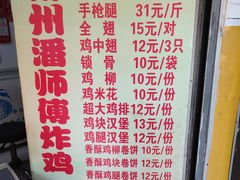 州潘师傅炸鸡
手枪腿 31元/斤
全翅 15元/对
鸡中翅 12元/3只
锁骨 10元/袋
鸡柳 10元/份
鸡米花 10元/份
超大鸡排 12元/份
鸡块汉堡 13元/份
鸡腿汉堡 12元/份
香酥鸡柳卷饼 10元/份
香酥鸡块卷饼 12元/份
香酥鸡腿卷饼 12元/份